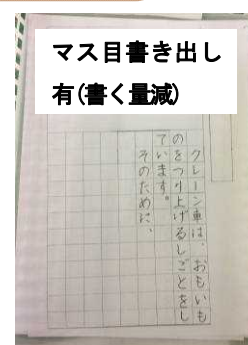 マス目書き出し
有(書く量減)
クレーン車は、おもいも
のをつり上げるしごとをし
ています。
そのために、